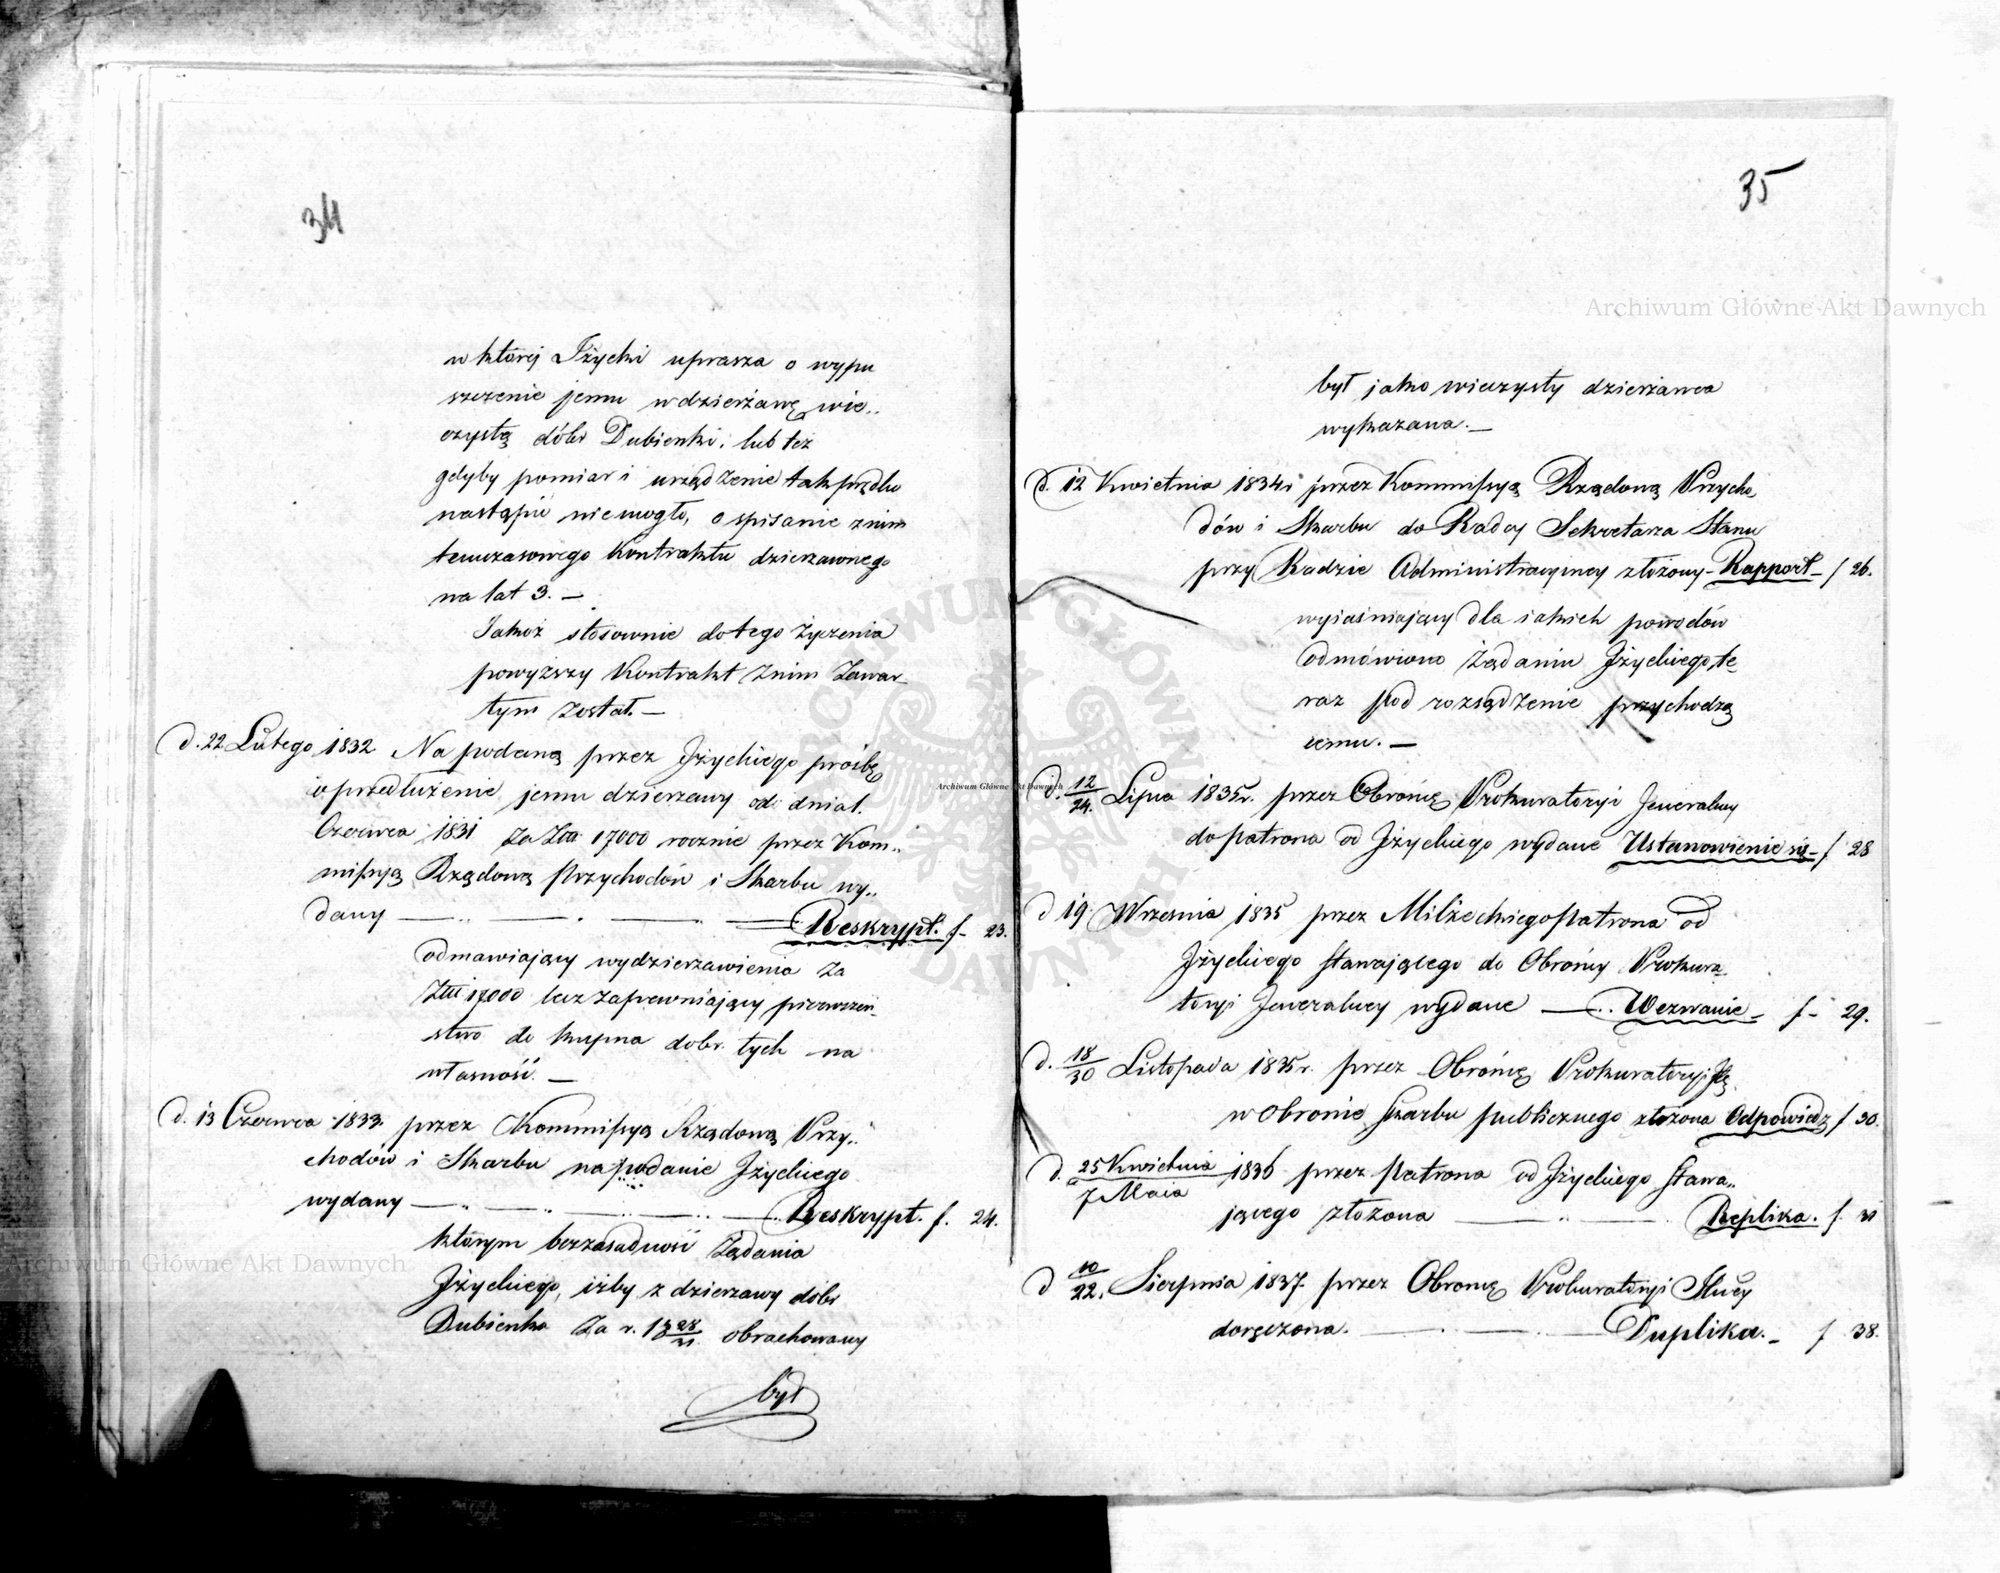 34
w której Iżycki uprasza o wypu
szczenie jemu w dzierżawę wie..
czystą dóbr Dubienki; lub też
gdyby pomiar i urządzenie tak prędko
nastąpić nie mogło, o spisanie z nim
temczasowego Kontraktu dzierzawnego
na lat 3. —
Jakoż stosownie do tego życzenia
powyższy Kontrakt z nim Zawar_
tym został. —
d. 22 Lutego 1832 Na podaną przez Iżyckiego prośbę
o przedłużenie jemu dzierzawy od dnia 1.
Czerwca 1831 za Złłt 17000 rocznie przez Kom..
missyą Rządową Przychodów i Skarbu wy..
dany — Reskrypt. f. 23.
odmawiający wydzierzawienia za
Złłt 17000 lecz zapewniający pierwszeń_
stwo do kupna dobr tych na
własność. —
d. 13 Czerwca 1833 przez Kommissyą Rządową Przy..
chodów i Skarbu na podanie Iżyckiego
wydany — Reskrypt. f. 24.
którym bezzasadność żądania
Iżyckiego, iżby z dzierzawy dóbr
Dubienka za r. 18 28/31 obrachowany
był
35
był jako wieczysty dzierżawca
wykazana. —
d. 12 Kwietnia 1834 r przez Kommissyą Rządową Przycho
dów i Skarbu do Radcy Sekretarza Stanu
przy Radzie Administracyjney złożony — Rapport — f 26.
wyjaśniający dla iakich powodów
odmówiono żądaniu Iżyckiego te
raz pod rozsądzenie przychodzą
cemu. —
d. 12/24. Lipca 1835 r. przez Obrońcę Prokuratoryi Jeneralney
do Patrona od Iżyckiego wydane Ustanowienie się — f 28
d 19 Września 1835 przez Milżeckiego Patrona od
Iżyckiego stawającego do Obrońcy Prokura_
toryi Jeneralney wydane — Wezwanie — f — 29.
d. 18/30 Listopada 1835 r. przez Obrońcę Prokuratoryi Je.
w Obronie Skarbu publicznego złożona Odpowiedz f 30.
d. 25 Kwietnia/7 Maia 1836 przez Patrona od Iżyckiego Stawa..
jącego złożona — Replika. f. 31
d 10/22. Sierpnia 1837. przez Obrońcę Prokuratoryi Jlney
doręczona. — Duplika. — f. 38.
Archiwum Główne Akt Dawnych
Archiwum Główne Akt Dawnych
Archiwum Główne Akt Dawnych
ARCHIWUM GŁÓWNE AKT DAWNYCH